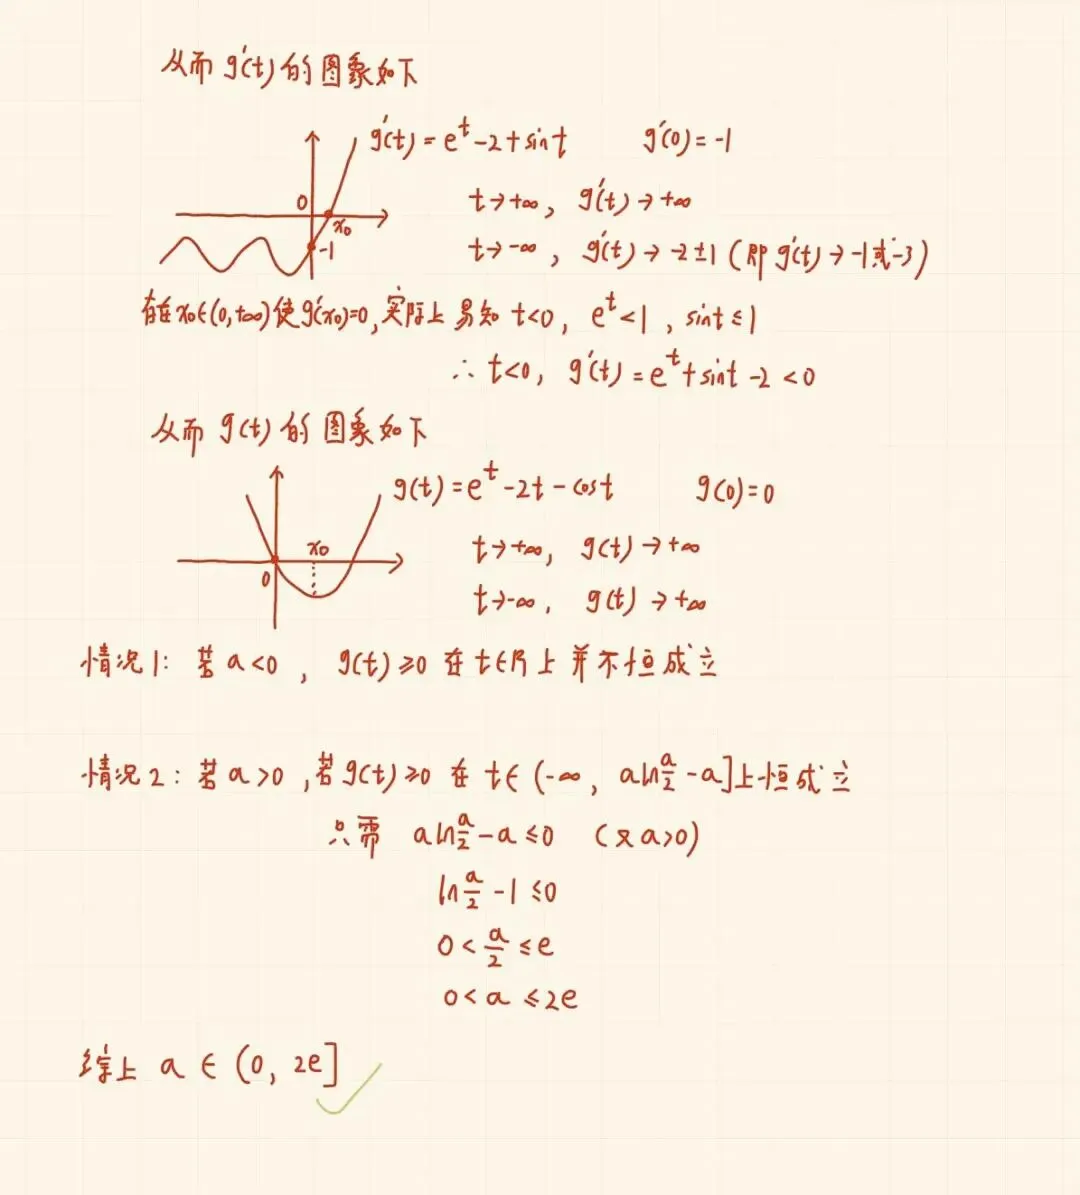 从而 g'(t) 的图象如下
g'(t) = e^t - 2 + sint g'(0) = -1
t→+∞, g'(t)→+∞
t→-∞, g'(t)→-2±1 (即 g'(t)→-1或-3)
0
x₀
-1
存在x₀∈(0,+∞)使g'(x₀)=0,实际上易知 t<0, e^t<1, sint≤1
∴ t<0, g'(t) = e^t + sint - 2 < 0
从而 g(t) 的图象如下
g(t) = e^t - 2t - cost g(0) = 0
x₀
t→+∞, g(t)→+∞
0
t→-∞, g(t)→+∞
情况1: 若 a<0, g(t)≥0 在 t∈R 上并不恒成立
情况2: 若 a>0, 若 g(t)≥0 在 t∈(-∞, aln\frac{a}{2}-a]上恒成立
只需 aln\frac{a}{2}-a≤0 (又a>0)
ln\frac{a}{2}-1≤0
0<\frac{a}{2}≤e
0<a≤2e
综上 a∈(0, 2e]